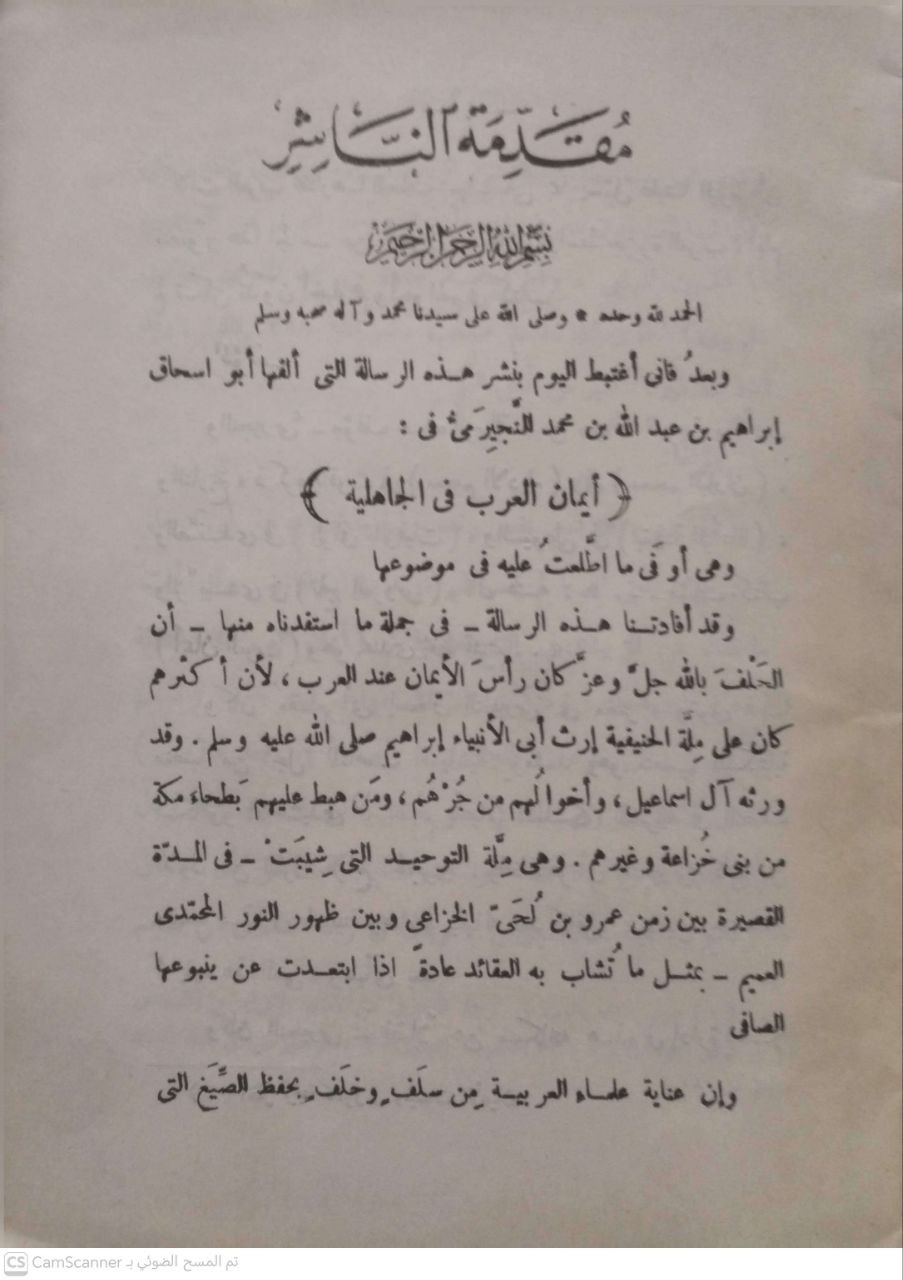 مُقَدِّمَة النَّاشِرِ
بِسْمِ اللهِ الرَّحْمَنِ الرَّحِيمِ
الحمد لله وحده * وصلى الله على سيدنا محمد وآله صحبه وسلم
وبعدُ فانى أغتبط اليوم بنشر هـذه الرسالة التى ألفها أبو اسحاق
إبراهيم بن عبد الله بن محمد النَّجِيرَمىُّ فى :
﴿ أيمان العرب فى الجاهلية ﴾
وهى أوفَى ما اطَّلعتُ عليه فى موضوعها
وقد أفادتـنا هـذه الرسالة ـ فى جملة ما استفدناه منها ـ أن
الحَلْفَ بالله جلَّ وعزَّ كان رأسَ الأيمان عند العرب ، لأن أكثرهم
كان على مِلَّة الحنيفية إرث أبى الأنبياء إبراهيم صلى الله عليه وسلم . وقد
ورثه آل اسماعيل ، وأخوالُهم من جُرْهُم ، ومَن هبط عليهم بَطحاء مكة
من بنى خُزاعة وغيرهم . وهى مِلَّة التوحيـد التى شِيبَتْ ـ فى المـدّة
القصيرة بين زمن عمرو بن لُحَىّ الخزاعى وبين ظهور النور المحمّدى
العميم ـ بمثـل ما تُشاب به العقائد عادةً اذا ابتعـدت عن ينبوعها
الصافى
وإن عناية علمـاء العربيـة مِن سلَفٍ وخلَفٍ بحفظ الصِّيَغ التى
CS CamScanner تم المسح الضوئي بـ